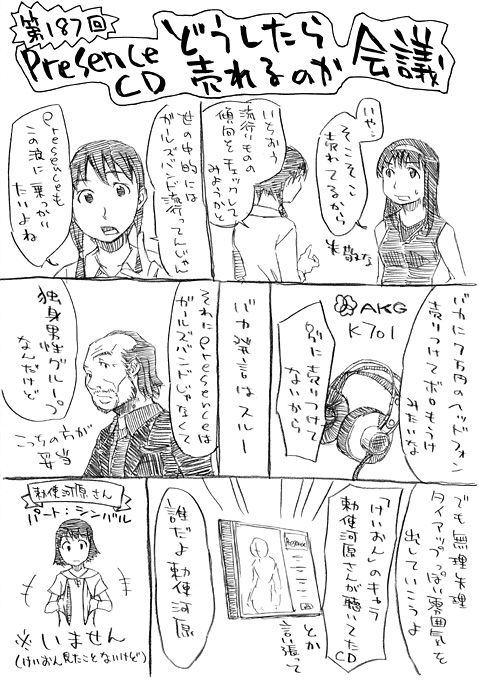 第187回
Presence
CD
どうしたら
売れるのか
会議
いや…
そこそこ
売れてるから
失敬な
いちおう
流行りものの
傾向をチェックして
みようかと
世の中的には
ガールズバンド流行ってんじゃん
Presenceも
この波に乗っかい
たいよね
バカに7万円のヘッドフォン
売りつけてボロもうけ
みたいな
AKG
K701
別に売りつけて
ないから
バカ発言はスルー
それにPresenceは
ガールズバンドじゃなくて
独身男性グループ
なんだけど
こっちの方が
妥当
でも無理矢理
タイアップっぽい雰囲気を
出していこうよ
「けいおん」のキャラ
勅使河原さんが聴いてた
CD
Presence
とか
言い張って
誰だよ勅使河原
勅使河原さん
パート:シンバル
※いません
(けいおん見たことないけど)